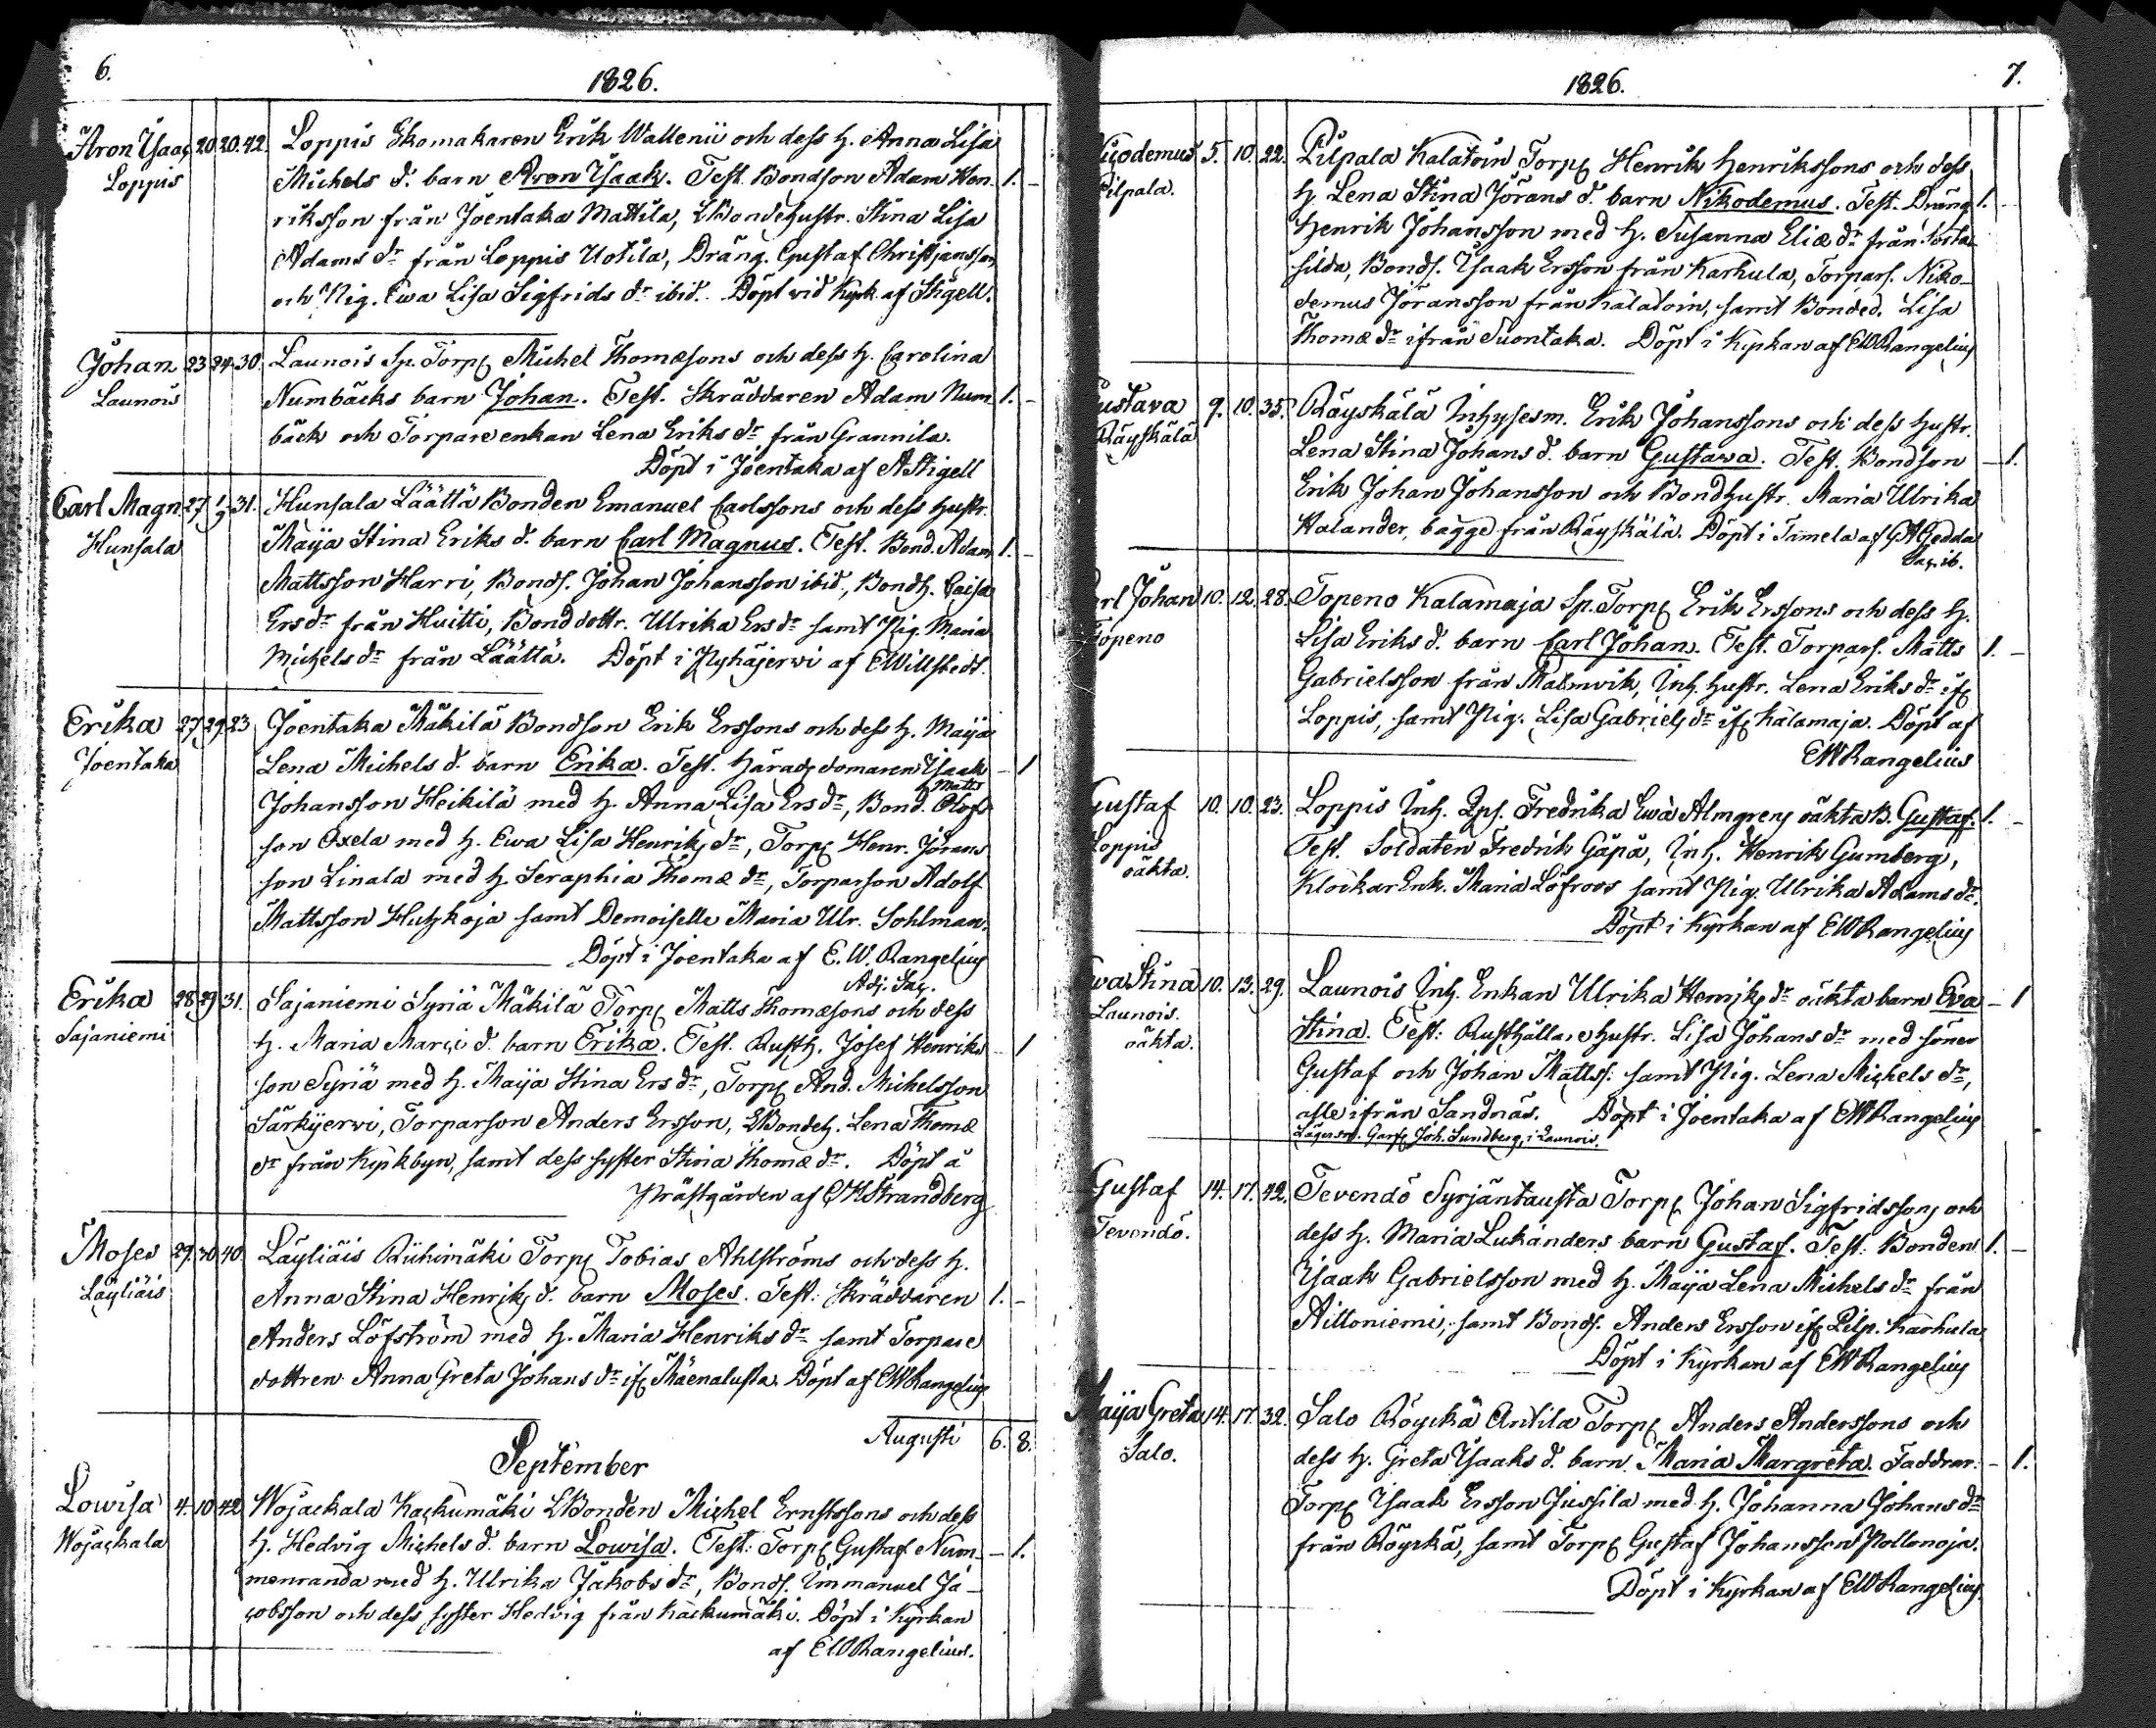 6.
1826.
Aron Ysaac 20. 20. 42. Loppis Skomakaren Erik Wallenii och dess h. Anna Lisa
Loppis Michels d. barn Aron Ysaak. Test. Bondson Adam Hen- 1. -
riksson från Joentaka Mattila, LBondehustr. Stina Lisa
Adams dr från Loppis Uotila, Dräng. Gustaf Christjansson
och Pig. Ewa Lisa Sigfrids dr ibid. Döpt vid Kyrk. af Stigell.
Johan 23 24 30. Launois Sp. Torp Michel Thomæsons och dess h. Carolina
Launois Numbäcks barn Johan. Test. Skräddaren Adam Num- 1. -
bäck och Torpareenkan Lena Eriks dr från Grannila.
Döpt i Joentaka af AStigell
Carl Magn. 27 1/9 31. Hunsala Läättä Bonden Emanuel Carlssons och dess hustr.
Hunsala Maija Stina Eriks d. barn Carl Magnus. Test. Bond. Adam 1. -
Mattsson Harri, Bonds. Johan Johansson ibid., Bondh. Caisa
Ers dr från Huitti, Bonddottr. Ulrika Ers dr samt Pig. Maria
Michels dr från Läättä. Döpt i Pyhäjerwi af EWillstedt.
Erika 27 29 23 Joentaka Mäkilä Bondson Erik Erssons och dess h. Maija
Joentaka Lena Michels d. barn Erika. Test. Häradsdomaren Ysaak - 1
Matts
Johansson Heikilä med h. Anna Lisa Ers dr, Bond. Olofs-
son Oxela med h. Ewa Lisa Henriks dr, Torp Henr. Jörans
son Linala med h. Seraphia Thomæ dr, Torparson Adolf
Mattsson Huhkoja samt Demoiselle Maria Ulr. Sohlman.
Döpt i Joentaka af E. W. Rangelius
Adj. Sac.
Erika 28 29 31. Sajaniemi Syriä Mäkilä Torp Matts Thomæsons och dess
Sajaniemi h. Maria Marci d. barn Erika. Test. Rusth. Josef Henriks - 1
son Syriä med h. Maija Stina Ers dr, Torp And. Michelsson
Särkijerwi, Torparson Anders Ersson, LBondeh. Lena Thomæ
dr från Kyrkbyn, samt dess syster Stina Thomæ dr. Döpt å
Prästgården af CHStrandberg
Moses 29. 30 40. Läyliäis Riihimäki Torp Tobias Ahlströms och dess h.
Läyliäis Anna Stina Henriks d. barn Moses. Test: Skräddaren 1. -
Anders Löfström med h. Maria Henriks dr samt Torpare
dottren Anna Greta Johans dr if Mäenalusta. Döpt af EWRangelius
Augusti 6. 8.
September
Lowisa 4. 10 42 Wojackala Kackumäki LBonden Michel Ernstssons och dess
Wojackala h. Hedvig Michels d. barn Lowisa. Test: Torp Gustaf Num- - 1.
menranda med h. Ulrika Jakobs dr, Bonds. Immanuel Ja-
cobsson och dess syster Hedvig från Kackumäki. Döpt i Kyrkan
af EWRangelius.
7.
1826.
Nicodemus 5. 10. 22. Pilpala Kalatoin Torp Henrik Henrikssons och dess
Pilpala. h. Lena Stina Jörans d. barn Nikodemus. Test. Dräng 1. -
Henrik Johansson med h. Susanna Eliæ dr från Korta-
silda, Bonds. Ysaak Ersson från Karhula, Torpars. Niko-
demus Jöransson från Kalatoin, samt Bonded. Lisa
Thomæ dr ifrån Suontaka. Döpt i Kyrkan af EWRangelius
Gustava 9. 10. 35. Räyskälä Inhysesm. Erik Johanssons och dess hustr.
Räyskälä Lena Stina Johans d. barn Gustawa. Test. Bondson - 1.
Erik Johan Johansson och Bondhustr. Maria Ulrika
Halander, bägge från Räyskälä. Döpt i Tamela af GAGedda
Sac. ib.
Carl Johan 10. 12. 28. Topeno Kalamaja Sp. Torp Erik Erssons och dess h.
Topeno Lisa Eriks d. barn Carl Johan. Test. Torpars. Matts 1. -
Gabrielsson från Malmvik, Inh. hustr. Lena Eriks dr if
Loppis, samt Pig. Lisa Gabriels dr if Kalamaja. Döpt af
EWRangelius
Gustaf 10. 10. 23. Loppis Inh. Qps. Fredrika Ewa Almgrens oäkta B. Gustaf. 1. -
Loppis Test. Soldaten Fredrik Gåpå, Inh. Henrik Gumberg,
oäkta. KlockarEnk. Maria Löfroos samt Pig. Ulrika Adams dr.
Döpt i Kyrkan af EWRangelius
Ewa Stina 10. 13. 29. Launois Inh. Enkan Ulrika Henriks dr oäkta barn Eva - 1
Launois. Stina. Test: Rusthållarehustr. Lisa Johans dr med söner
oäkta. Gustaf och Johan Mattss: samt Pig. Lena Michels dr,
alle ifrån Sandnäs. Döpt i Joentaka af EWRangelius
Lägersm. Garf Joh. Sundberg i Launois.
Gustaf 14. 17. 42. Tevendö Syrjäntausta Torp Johan Sigfridssons och
Tevendö. dess h. Maria Lukanders barn Gustaf. Test: Bonden 1. -
Ysaak Gabrielsson med h. Maija Lena Michels dr från
Aittoniemi, samt Bonds. Anders Ersson if Pilp. Karhula
Döpt i Kyrkan af EWRangelius
Maija Greta 14. 17. 32. Salo Röyckä Antila Torp Anders Anderssons och
Salo. dess h. Greta Ysaaks d. barn Maria Margreta. Faddrar: - 1.
Torp Ysaak Ersson Jussila med h. Johanna Johans dr
från Röyckä, samt Torp Gustaf Johansson Pollonoja.
Döpt i Kyrkan af EWRangelius.